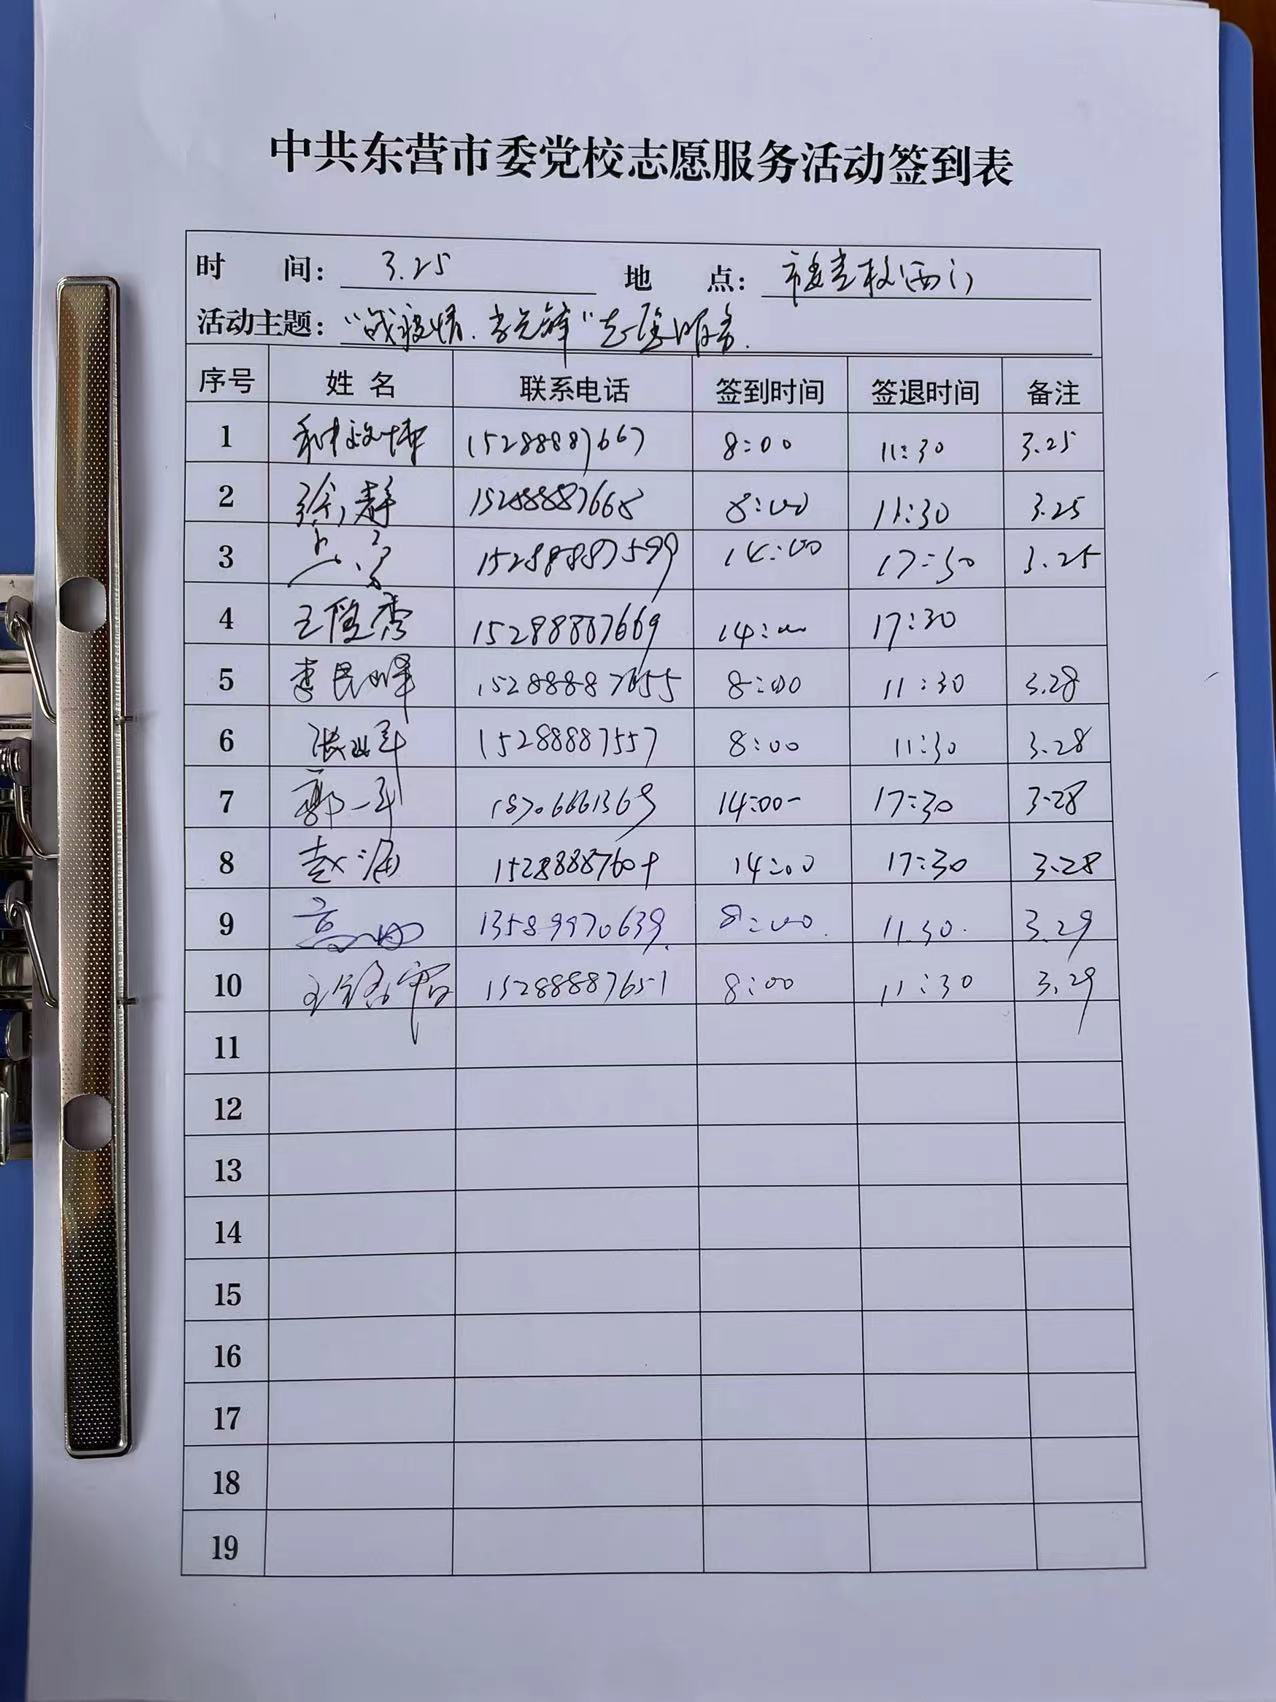 中共东营市委党校志愿服务活动签到表
时 间: 3.25 地 点: 市委党校西门
活动主题: “战疫情.当先锋”志愿服务.
序号 姓名 联系电话 签到时间 签退时间 备注
1 15288887667 8:00 11:30 3.25
2 徐静 15288887668 8:00 11:30 3.25
3 15288887599 14:00 17:30 3.25
4 15288887669 14:00 17:30
5 李民峰 15288887655 8:00 11:30 3.28
6 15288887557 8:00 11:30 3.28
7 郭一军 18706661369 14:00- 17:30 3.28
8 赵海 15288887604 14:00 17:30 3.28
9 13589970639. 8:00. 11.30. 3.29
10 15288887651 8:00 11:30 3.29
11
12
13
14
15
16
17
18
19